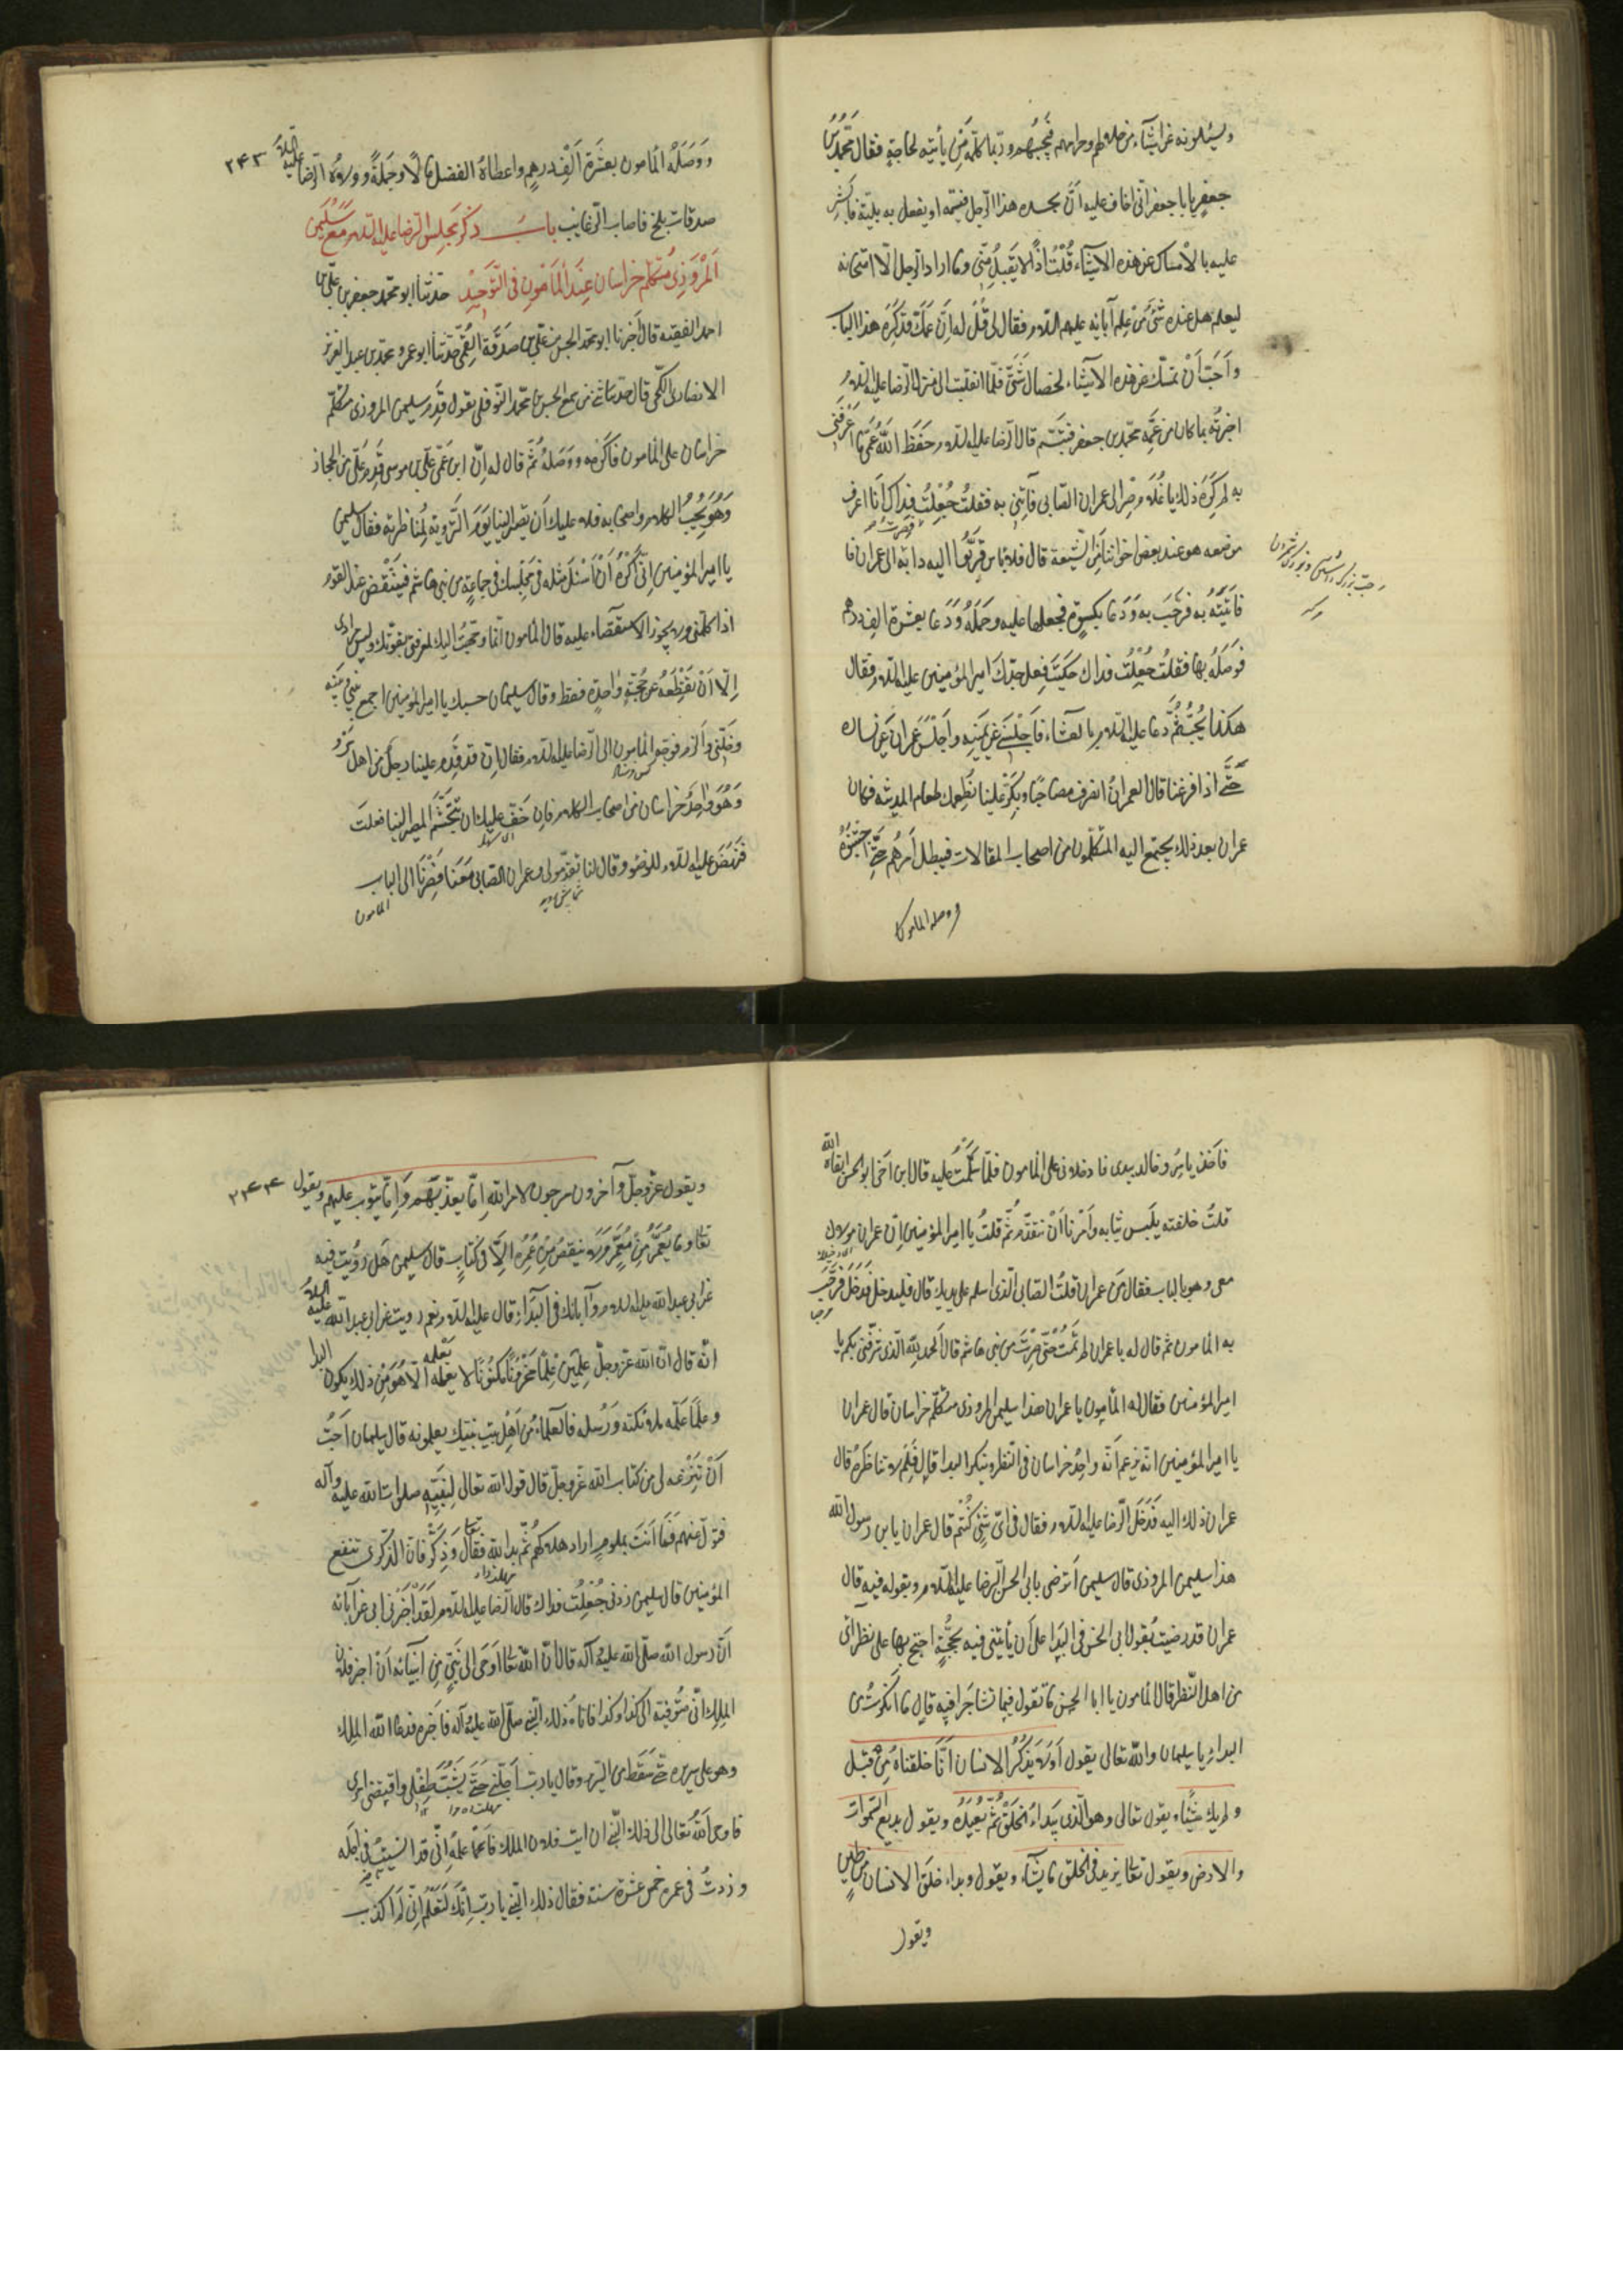 ويسئلونه عن اشياء من حلالهم وحرامهم فيجيبهم وربما كلم من يأتيه لحاجة فقال محمد بن
جعفر يا با جعفر انى اخاف عليه ان يحسده هذا الرجل فيسمه او يفعل به بلية فاشر
عليه بالامساك عن هذه الاشياء قلت اذًا لا يقبل منى وما اراد الرجل الا امتحانه
ليعلم هل عنده شئ من علم آبائه عليهم السلام فقال لى قل له ان عمك قد كره هذا الباب
واحب ان تمسك عن هذه الاشياء لخصال شتى فلما انقلبت الى منزل الرضا عليه السلام
اخبرته بما كان من عمه محمد بن جعفر فتبسم قال الرضا عليه السلام حفظ الله عمى ما اعرفنى
به لم كره ذلك يا غلام صر الى عمران الصابى فأتنى به فقلت جعلت فداك انا اعرف
موضعه هو عند بعض اخواننا من الشيعة قال فلا باس قربوا اليه دابه فصرت الى عمران فا
فاتيته به فرحب به ودعا بكسوة فجعلها عليه وحمله ودعا بعشرة الف درهم
فوصله بها فقلت جعلت فداك حكيت فعل جدك امير المؤمنين عليه السلام فقال
هكذا يجب ثم دعا عليه السلام بالعشاء فاجلسنى عن يمينه واجلس عمران عن يساره
حتى اذا فرغنا قال لعمران انصرف مصاحبًا وبكر علينا نطعمك طعام المدينة فكان
عمران بعد ذلك يجتمع اليه المتكلمون من اصحاب المقالات فيبطل امرهم حتى اجتنبوه
ووصله المامون
ووصله المأمون بعشرة الف درهم واعطاه الفضل مالًا وحمله وولاه الرضا عليه السلام ٢٤٣
صدقات بلخ فاصاب الرغايب باب ذكر مجلس الرضا عليه السلام مع سليمن
المروزى متكلم خراسان عند المأمون فى التوحيد حدثنا ابو محمد جعفر بن على بن
احمد الفقيه قال اخبرنا ابو محمد الحسن بن على بن صدقة القمى حدثنا ابو عمرو محمد بن عبد العزيز
الانصارى الكجى قال حدثنا من سمع الحسن بن محمد النوفلى يقول قدم سليمن المروزى متكلم
خراسان على المامون فاكرمه ووصله ثم قال له ان ابن عمى على بن موسى قدم على من الحجاز
وهو يحب الكلام واصحابه فلا عليك ان تصير الينا يوم التروية لمناظرته فقال سليمن
يا امير المؤمنين انى اكره ان اسئل مثله فى مجلسك فى جماعة من بنى هاشم فينتقض عند القوم
اذا كلمنى ولا يجوز الاستقصاء عليه قال المامون انما وجهت اليك لمعرفتى بقوتك وليس مرادى
الا ان تقطعه عن حجة واحدة فقط وقال سليمان حسبك يا امير المؤمنين اجمع بينى وبينه
وخلنى والزم فوجه المامون الى الرضا عليه السلام فقال انه قد قدم علينا رجل من اهل مرو
وهو واحد خراسان من اصحاب الكلام فان خف عليك ان تتجشم المصير الينا فعلت
فنهض عليه السلام للوضوء وقال لنا تقدمونى وعمران الصابى معنا فصرنا الى الباب
المامون
فاخذ ياسر وخالد بيدى فادخلانى على المامون فلما سلمت عليه قال اين اخى ابو الحسن ابقاه الله
قلت خلفته يلبس ثيابه وامرنا ان نتقدم ثم قلت يا امير المؤمنين ان عمران مولاك
معى وهو بالباب فقال من عمران قلت الصابى الذى اسلم على يديك قال فليدخل فدخل فرحب
به المامون ثم قال له يا عمران لم تمت حتى صرت من بنى هاشم قال الحمد لله الذى شرفنى بكم يا
امير المؤمنين فقال له المأمون يا عمران هذا سليمن المروزى متكلم خراسان قال عمران
يا امير المؤمنين انه يزعم انه واحد خراسان فى النظر وينكر البدا قال فلم لا تناظره قال
عمران ذلك اليه فدخل الرضا عليه السلام فقال فى اى شئ كنتم قال عمران يا بن رسول الله
هذا سليمن المروزى قال سليمن اترضى بابى الحسن الرضا عليه السلام وبقوله فيه قال
عمران قد رضيت بقول ابى الحسن فى البدا على ان يأتينى فيه بحجة احتج بها على نظرائى
من اهل النظر قال المامون يا ابا الحسن ما تقول فيما تشاجرا فيه قال ما انكرت من
البداء يا سليمان والله تعالى يقول اولا يذكر الانسان انا خلقناه من قبل
ولم يك شيئا ويقول تعالى وهو الذى يبداء الخلق ثم يعيده ويقول بديع السموات
والارض ويقول تعالى يزيد فى الخلق ما يشآء ويقول وبداء خلق الانسان من طين
ويقول
ويقول عز وجل وآخرون مرجون لامر الله اما يعذبهم واما يتوب عليهم ويقول ٢٤٤
تعالى وما يعمر من معمر ولا ينقص من عمره الا فى كتاب قال سليمن هل رويت فيه
عن ابى عبد الله عليه السلام وآبائك فى البداء قال عليه السلام نعم رويت عن ابى عبد الله عليه السلام
انه قال ان الله عز وجل علمين علمًا مخزونًا مكنونًا لا يعلمه الا هو من ذلك يكون البدا
وعلمًا علمه ملائكته ورسله فالعلماء من اهل بيت نبيك يعلمونه قال سليمان احب
ان تنزعه لى من كتاب الله عز وجل قال قول الله تعالى لنبيه صلوات الله عليه وآله
فتول عنهم فما انت بملوم اراد هلاكهم ثم بدا لله فقال تعالى وذكر فان الذكرى تنفع
المؤمنين قال سليمن زدنى جعلت فداك قال الرضا عليه السلام لقد اخبرنى ابى عن آبائه
ان رسول الله صلى الله عليه وآله قال ان الله تعالى اوحى الى نبى من انبيائه ان اخبر فلان
الملك انى متوفيه الى كذا وكذا فاتاه ذلك النبى صلى الله عليه وآله فاخبره فدعا الله الملك
وهو على سريره حتى سقط من السرير وقال يا رب اجلنى حتى يشب طفلى واقضى امرى
فاوحى الله تعالى الى ذلك النبى ان ائت فلان الملك فاعلمه انى قد انسيت فى اجله
وزدت فى عمره خمس عشرة سنة فقال ذلك النبى يا رب انك لتعلم انى لم اكذب